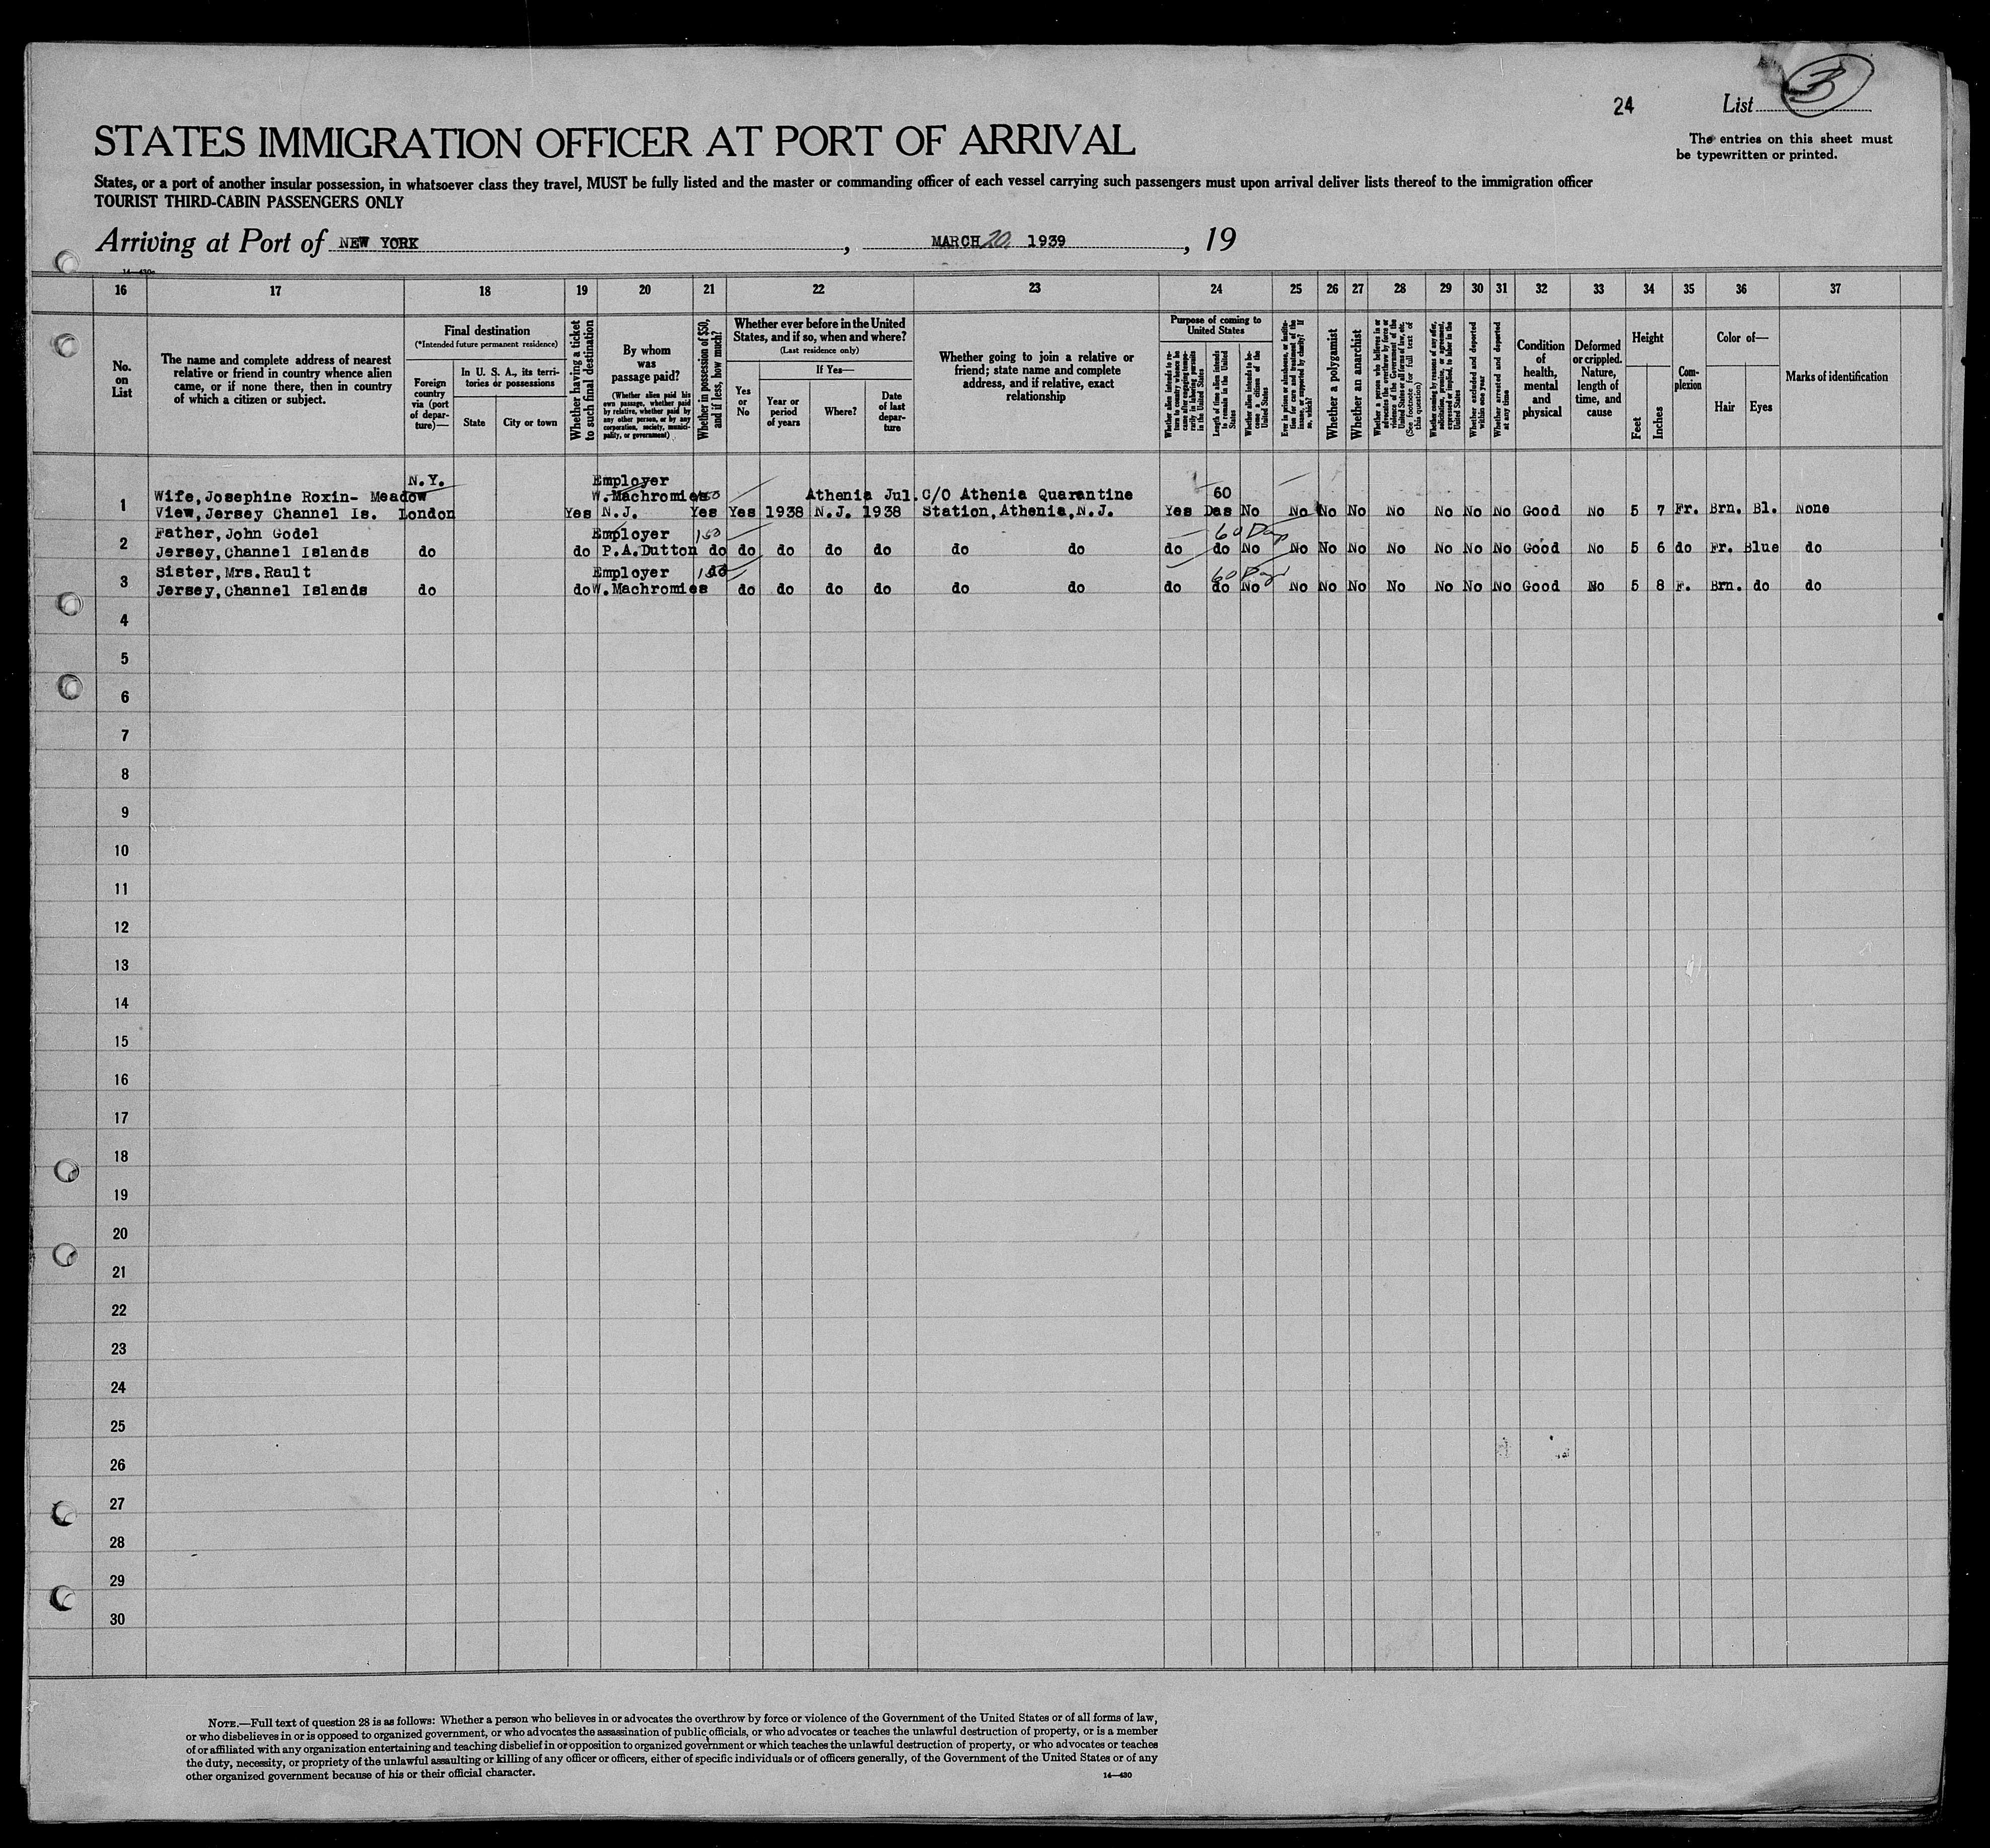 24
List 3
STATES IMMIGRATION OFFICER AT PORT OF ARRIVAL
The entries on this sheet must
be typewritten or printed.
States, or a port of another insular possession, in whatsoever class they travel, MUST be fully listed and the master or commanding officer of each vessel carrying such passengers must upon arrival deliver lists thereof to the immigration officer
TOURIST THIRD-CABIN PASSENGERS ONLY
Arriving at Port of NEW YORK, MARCH 20, 1939, 19
14—430
16 17 18 19 20 21 22 23 24 25 26 27 28 29 30 31 32 33 34 35 36 37
No.
on
List
The name and complete address of nearest
relative or friend in country whence alien
came, or if none there, then in country
of which a citizen or subject.
Final destination
(*Intended future permanent residence)
Foreign
country
via (port
of depar-
ture)—
In U. S. A., its terri-
tories or possessions
State
City or town
Whether having a ticket
to such final destination
By whom
was
passage paid?
(Whether alien paid his
own passage, whether paid
by relative, whether paid by
any other person, or by any
corporation, society, munici-
pality, or government)
Whether in possession of $50,
and if less, how much?
Whether ever before in the United
States, and if so, when and where?
(Last residence only)
Yes
or
No
If Yes—
Year or
period
of years
Where?
Date
of last
depar-
ture
Whether going to join a relative or
friend; state name and complete
address, and if relative, exact
relationship
Purpose of coming to
United States
Whether alien intends to re-
turn to country whence he
came after engaging tempo-
rarily in laboring pursuits
in the United States
Length of time alien intends
to remain in the United
States
Whether alien intends to be-
come a citizen of the
United States
Ever in prison or almshouse, or institu-
tion for care and treatment of the
insane, or supported by charity? If
so, which?
Whether a polygamist
Whether an anarchist
Whether a person who believes in or
advocates the overthrow by force or
violence of the Government of the
United States or all forms of law, etc.
(See footnote for full text of
this question)
Whether coming by reasons of any offer,
solicitation, promise, or agreement,
expressed or implied, to labor in the
United States
Whether excluded and deported
within one year
Whether arrested and deported
at any time
Condition
of
health,
mental
and
physical
Deformed
or crippled.
Nature,
length of
time, and
cause
Height
Feet
Inches
Com-
plexion
Color of—
Hair
Eyes
Marks of identification
N.Y. Employer
Wife, Josephine Roxin- Meadow W. Machromies 150 Athenia Jul. C/O Athenia Quarantine 60
1 View, Jersey Channel Is. London Yes N.J. Yes Yes 1938 N.J. 1938 Station, Athenia, N.J. Yes Das No No No No No No No No Good No 5 7 Fr. Brn. Bl. None
Father, John Godel Employer 150 60 Days
2 Jersey, Channel Islands do do P.A. Dutton do do do do do do do do do No No No No No No No No Good No 5 6 do Fr. Blue do
Sister, Mrs. Rault Employer 150 do 60 Days
3 Jersey, Channel Islands do do W. Machromies do do do do do do do do No No No No No No No No Good No 5 8 F. Brn. do do
4
5
6
7
8
9
10
11
12
13
14
15
16
17
18
19
20
21
22
23
24
25
26
27
28
29
30
NOTE.—Full text of question 28 is as follows: Whether a person who believes in or advocates the overthrow by force or violence of the Government of the United States or of all forms of law,
or who disbelieves in or is opposed to organized government, or who advocates the assassination of public officials, or who advocates or teaches the unlawful destruction of property, or is a member
of or affiliated with any organization entertaining and teaching disbelief in or opposition to organized government or which teaches the unlawful destruction of property, or who advocates or teaches
the duty, necessity, or propriety of the unlawful assaulting or killing of any officer or officers, either of specific individuals or of officers generally, of the Government of the United States or of any
other organized government because of his or their official character.
14—430